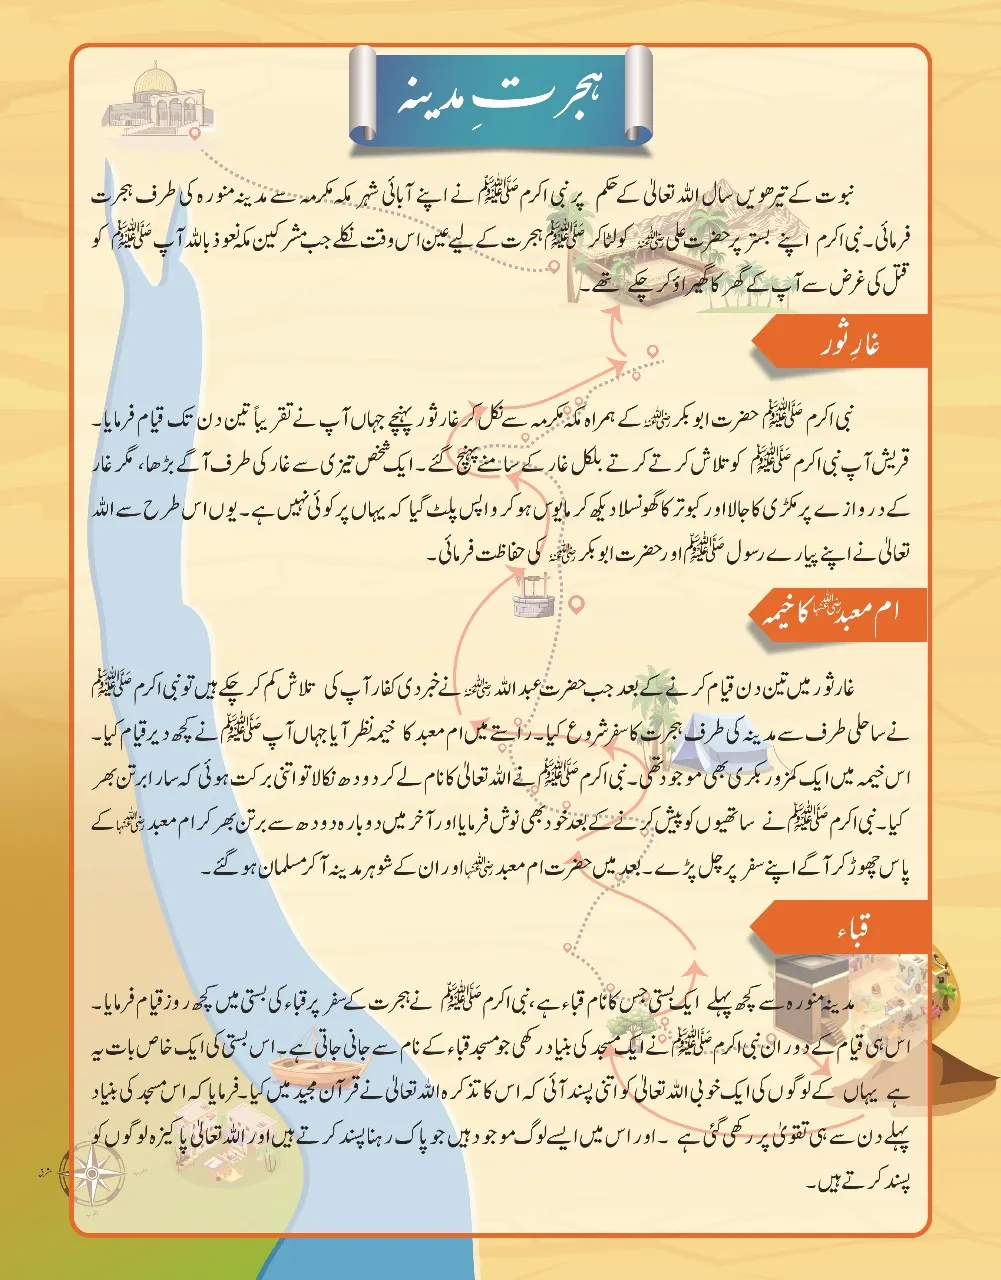 ہجرتِ مدینہ
نبوت کے تیرھویں سال اللہ تعالیٰ کے حکم پر نبی اکرم ﷺ نے اپنے آبائی شہر مکہ مکرمہ سے مدینہ منورہ کی طرف ہجرت
فرمائی۔ نبی اکرم اپنے بستر پر حضرت علی رضی اللہ عنہ کو لٹا کر ﷺ ہجرت کے لیے عین اس وقت نکلے جب مشرکین مکہ نعوذ باللہ آپ ﷺ کو
قتل کی غرض سے آپ کے گھر کا گھیراؤ کر چکے تھے۔
غارِ ثور
نبی اکرم ﷺ حضرت ابو بکر رضی اللہ عنہ کے ہمراہ مکہ مکرمہ سے نکل کر غار ثور پہنچے جہاں آپ نے تقریباً تین دن تک قیام فرمایا۔
قریش آپ نبی اکرم ﷺ کو تلاش کرتے کرتے بلکل غار کے سامنے پہنچ گئے۔ ایک شخص تیزی سے غار کی طرف آگے بڑھا، مگر غار
کے دروازے پر مکڑی کا جالا اور کبوتر کا گھونسلا دیکھ کر مایوس ہو کر واپس پلٹ گیا کہ یہاں پر کوئی نہیں ہے۔ یوں اس طرح سے اللہ
تعالیٰ نے اپنے پیارے رسول ﷺ اور حضرت ابو بکر رضی اللہ عنہ کی حفاظت فرمائی۔
ام معبد رضی اللہ عنہا کا خیمہ
غار ثور میں تین دن قیام کرنے کے بعد جب حضرت عبد اللہ رضی اللہ عنہ نے خبر دی کفار آپ کی تلاش کم کر چکے ہیں تو نبی اکرم ﷺ
نے ساحلی طرف سے مدینہ کی طرف ہجرت کا سفر شروع کیا۔ راستے میں ام معبد کا خیمہ نظر آیا جہاں آپ ﷺ نے کچھ دیر قیام کیا۔
اس خیمہ میں ایک کمزور بکری بھی موجود تھی۔ نبی اکرم ﷺ نے اللہ تعالیٰ کا نام لے کر دودھ نکالا تو اتنی برکت ہوئی کہ سارا برتن بھر
کیا۔ نبی اکرم ﷺ نے ساتھیوں کو پیش کرنے کے بعد خود بھی نوش فرمایا اور آخر میں دوبارہ دودھ سے برتن بھر کر ام معبد رضی اللہ عنہا کے
پاس چھوڑ کر آگے اپنے سفر پر چل پڑے۔ بعد میں حضرت ام معبد رضی اللہ عنہا اور ان کے شوہر مدینہ آ کر مسلمان ہو گئے۔
قباء
مدینہ منورہ سے کچھ پہلے ایک بستی جس کا نام قباء ہے، نبی اکرم ﷺ نے ہجرت کے سفر پر قباء کی بستی میں کچھ روز قیام فرمایا۔
اس ہی قیام کے دوران نبی اکرم ﷺ نے ایک مسجد کی بنیاد رکھی جو مسجد قباء کے نام سے جانی جاتی ہے۔ اس بستی کی ایک خاص بات یہ
ہے یہاں کے لوگوں کی ایک خوبی اللہ تعالیٰ کو اتنی پسند آئی کہ اس کا تذکرہ اللہ تعالیٰ نے قرآن مجید میں کیا۔ فرمایا کہ اس مسجد کی بنیاد
پہلے دن سے ہی تقویٰ پر رکھی گئی ہے ۔ اور اس میں ایسے لوگ موجود ہیں جو پاک رہنا پسند کرتے ہیں اور اللہ تعالیٰ پاکیزہ لوگوں کو
پسند کرتے ہیں۔
مشرق